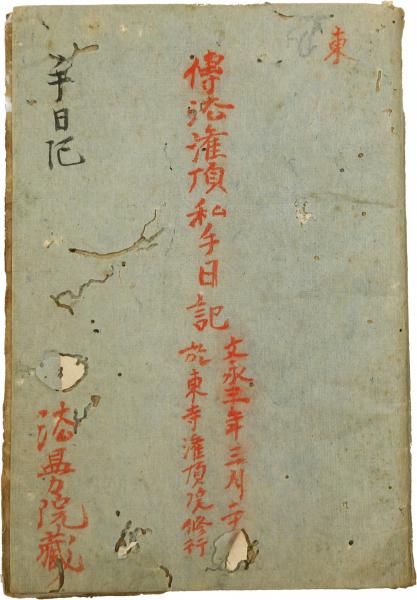 東
傳法灌頂私手日記
文永三年三月
於東寺灌頂院修行
手日記
院蔵